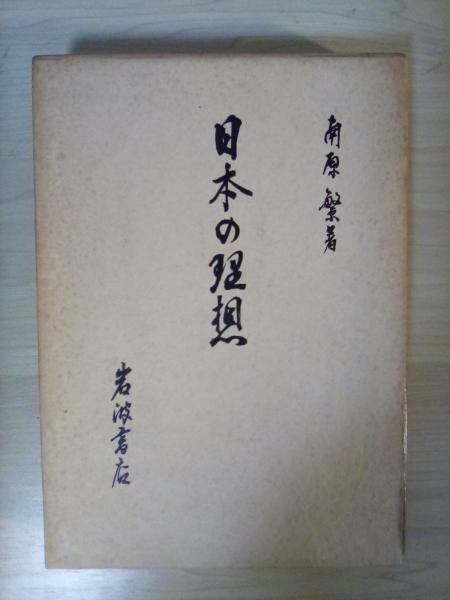 南原繁著
日本の理想
岩波書店